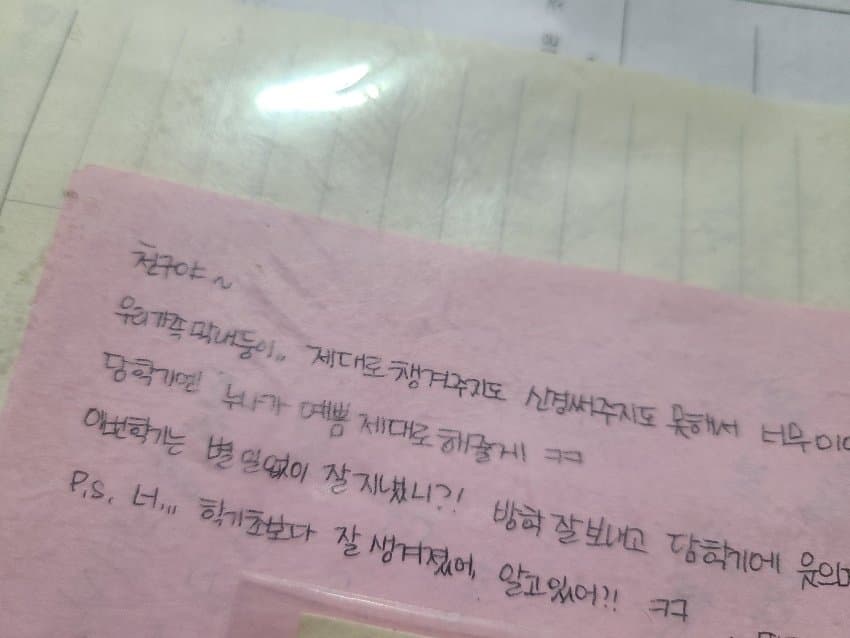 친구야~
우리가족 막내둥이.. 제대로 챙겨주지도 신경써주지도 못해서 너무 미안
담학기엔 누나가 예쁨 제대로 해줄게 ㅋㅋ
이번학기는 별 일 없이 잘 지냈니?! 방학 잘 보내고 담학기에 웃으며
P.S. 너... 학기초보다 잘 생겨졌어, 알고있어?! ㅋㅋ